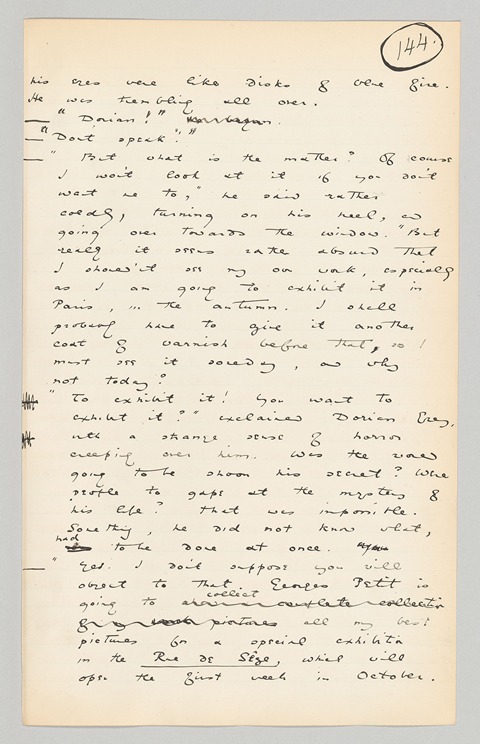 144.
his eyes were like disks of blue fire.
He was trembling all over.
"Dorian!"
"Don't speak!"
"But what is the matter? Of course
I won't look at it if you don't
want me to," he said rather
coldly, turning on his heel, and
going over towards the window. "But
really it seems rather absurd that
I shouldn't see my own work, especially
as I am going to exhibit it in
Paris, in the autumn. I shall
probably have to give it another
coat of varnish before that, so I
must see it someday, and why
not today?"
"To exhibit it! You want to
exhibit it?" exclaimed Dorian Gray,
with a strange sense of horror
creeping over him. Was the world
going to be shown his secret? Were
people to gape at the mystery of
his life? That was impossible.
Something, he did not know what,
had
to be done at once.
"Yes. I don't suppose you will
object to that. Georges Petit is
collect
going to a complete collection
of my pictures all my best
pictures for a special exhibition
in the Rue de Sèze, which will
open the first week in October.